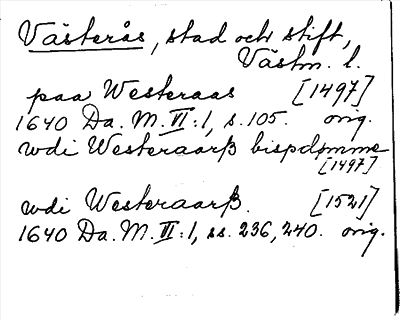 Västerås, stad och stift,
Västm. l.
paa Westeraas [1497]
1640 Da. M. VI:1, s. 105. orig.
wdi Westeraarß bispdomme
[1497]
wdi Westeraarß. [1521]
1640 Da. M. VI:1, ss. 236, 240. orig.